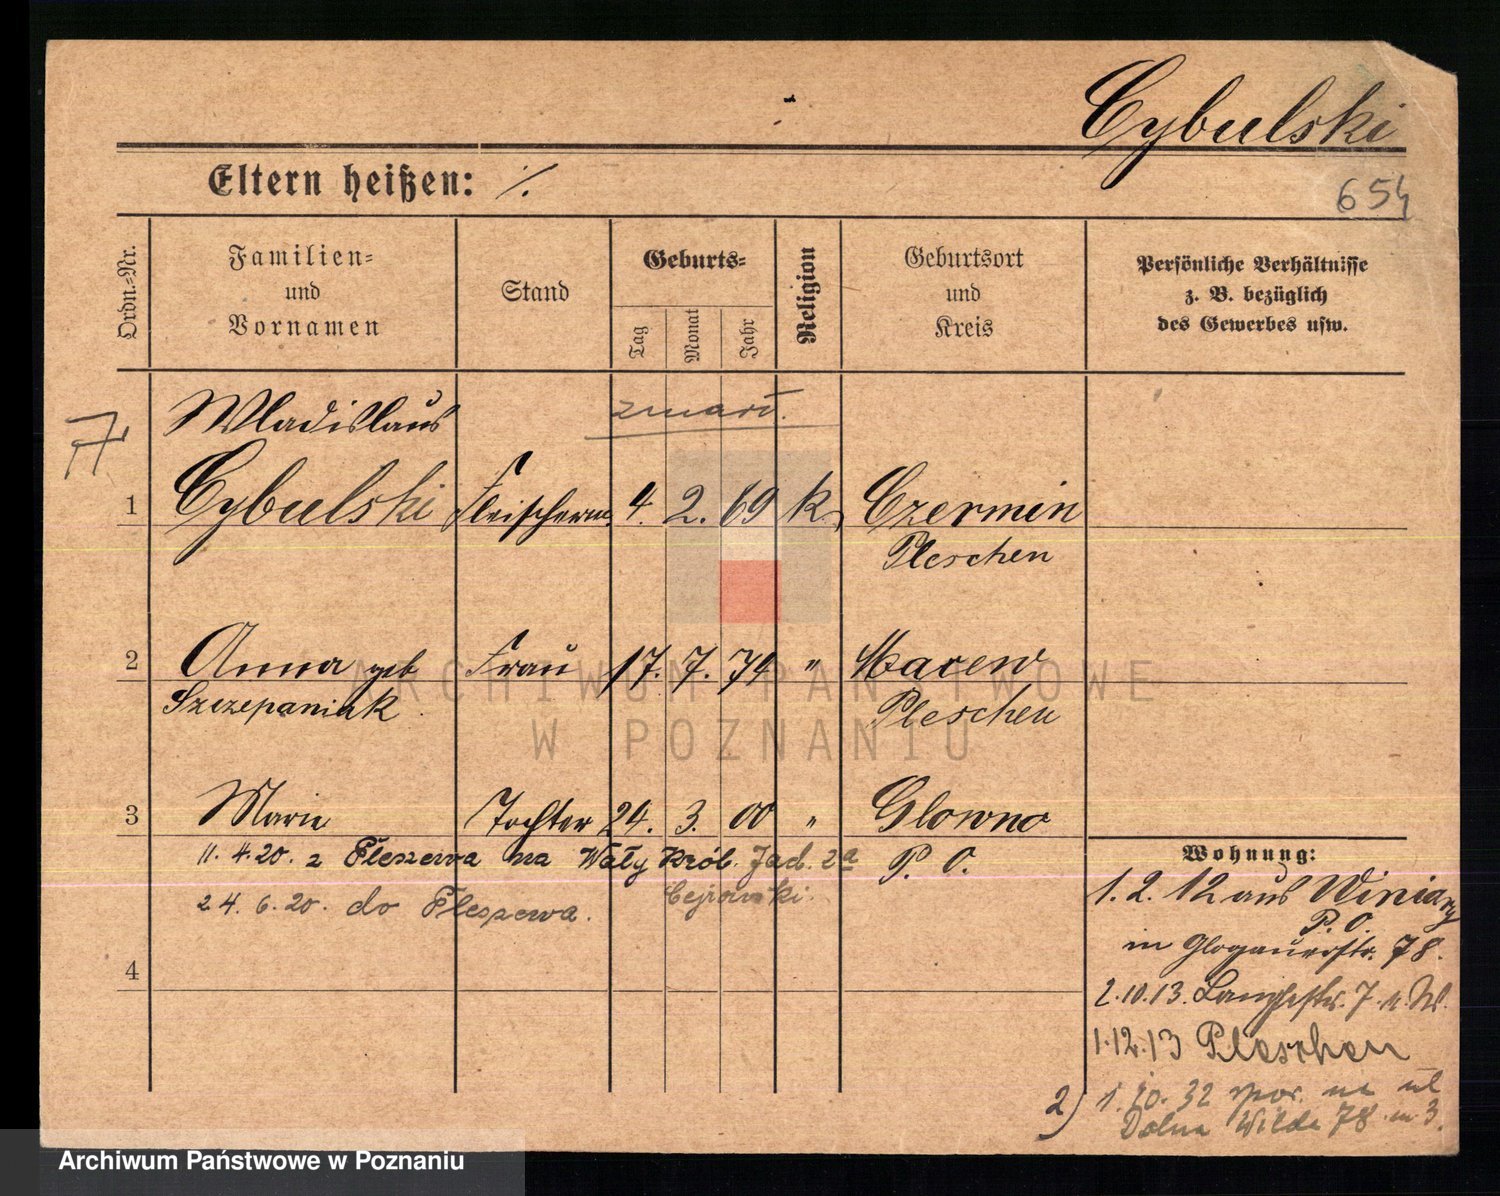 Cybulski
Eltern heißen: ⁒
654
Ordn.-Nr.
Familien-
und
Vornamen
Stand
Geburts-
Tag
Monat
Jahr
Religion
Geburtsort
und
Kreis
Persönliche Verhältnisse
z. B. bezüglich
des Gewerbes usw.
Wladislaus
zmarł.
1 Cybulski Fleischerm. 4. 2. 69 k. Czermin
Pleschen
2 Anna geb Frau 17. 7. 74 " Macew
Szczepaniak Pleschen
3 Marie Tochter 24. 3. 00 " Glowno
P. O.
11. 4. 20. z Pleszewa na Wały Król. Jad. 2a
Cejrowski.
24. 6. 20. do Pleszewa.
4
Wohnung:
1. 2. 12 aus Winiary
P. O.
in Glogauerstr. 78.
2. 10. 13. Langestr. 7. W.
1. 12. 13 Pleschen
2) 1. 10. 32 na ul
Dolna Wilda 78 m 3.
ARCHIWUM PAŃSTWOWE
W POZNANIU
Archiwum Państwowe w Poznaniu